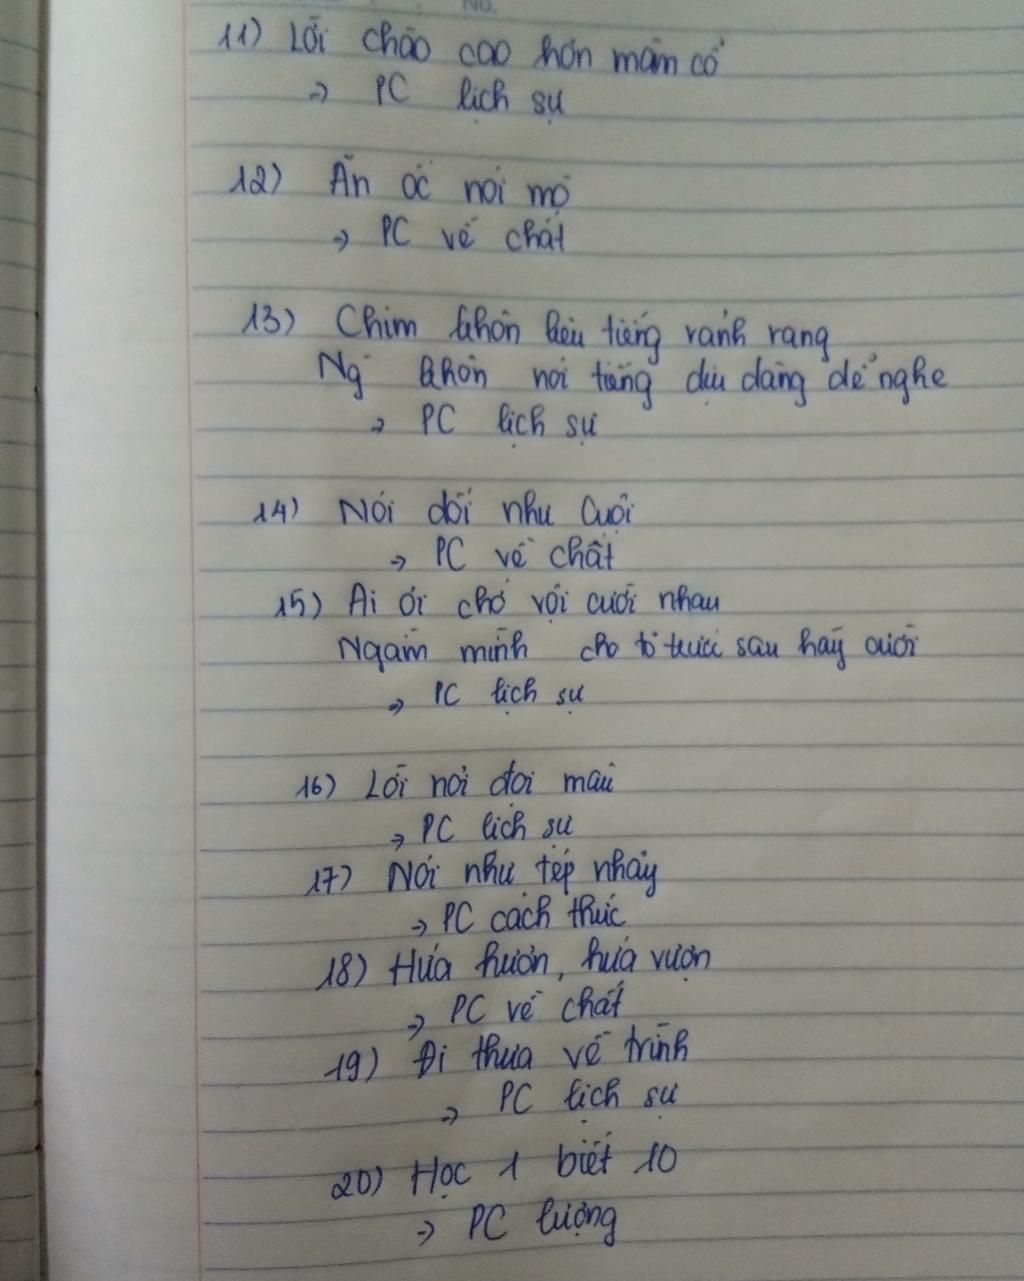 No.
11) Lời chào cao hơn mâm cỗ
=> PC lịch sự
12) Ăn ốc nói mò
=> PC về chất
13) Chim khôn kêu tiếng rảnh rang
Ng khôn nói tiếng dịu dàng dễ nghe
=> PC lịch sự
14) Nói dối như Cuội
=> PC về chất
15) Ai ơi chớ vội cười nhau
Ngắm mình cho tỏ trước sau hãy cười
=> PC lịch sự
16) Lời nói đọi máu
=> PC lịch sự
17) Nói như tép nhảy
=> PC cách thức
18) Hứa hươu, hứa vượn
=> PC về chất
19) Đi thưa về trình
=> PC lịch sự
20) Học 1 biết 10
=> PC lượng